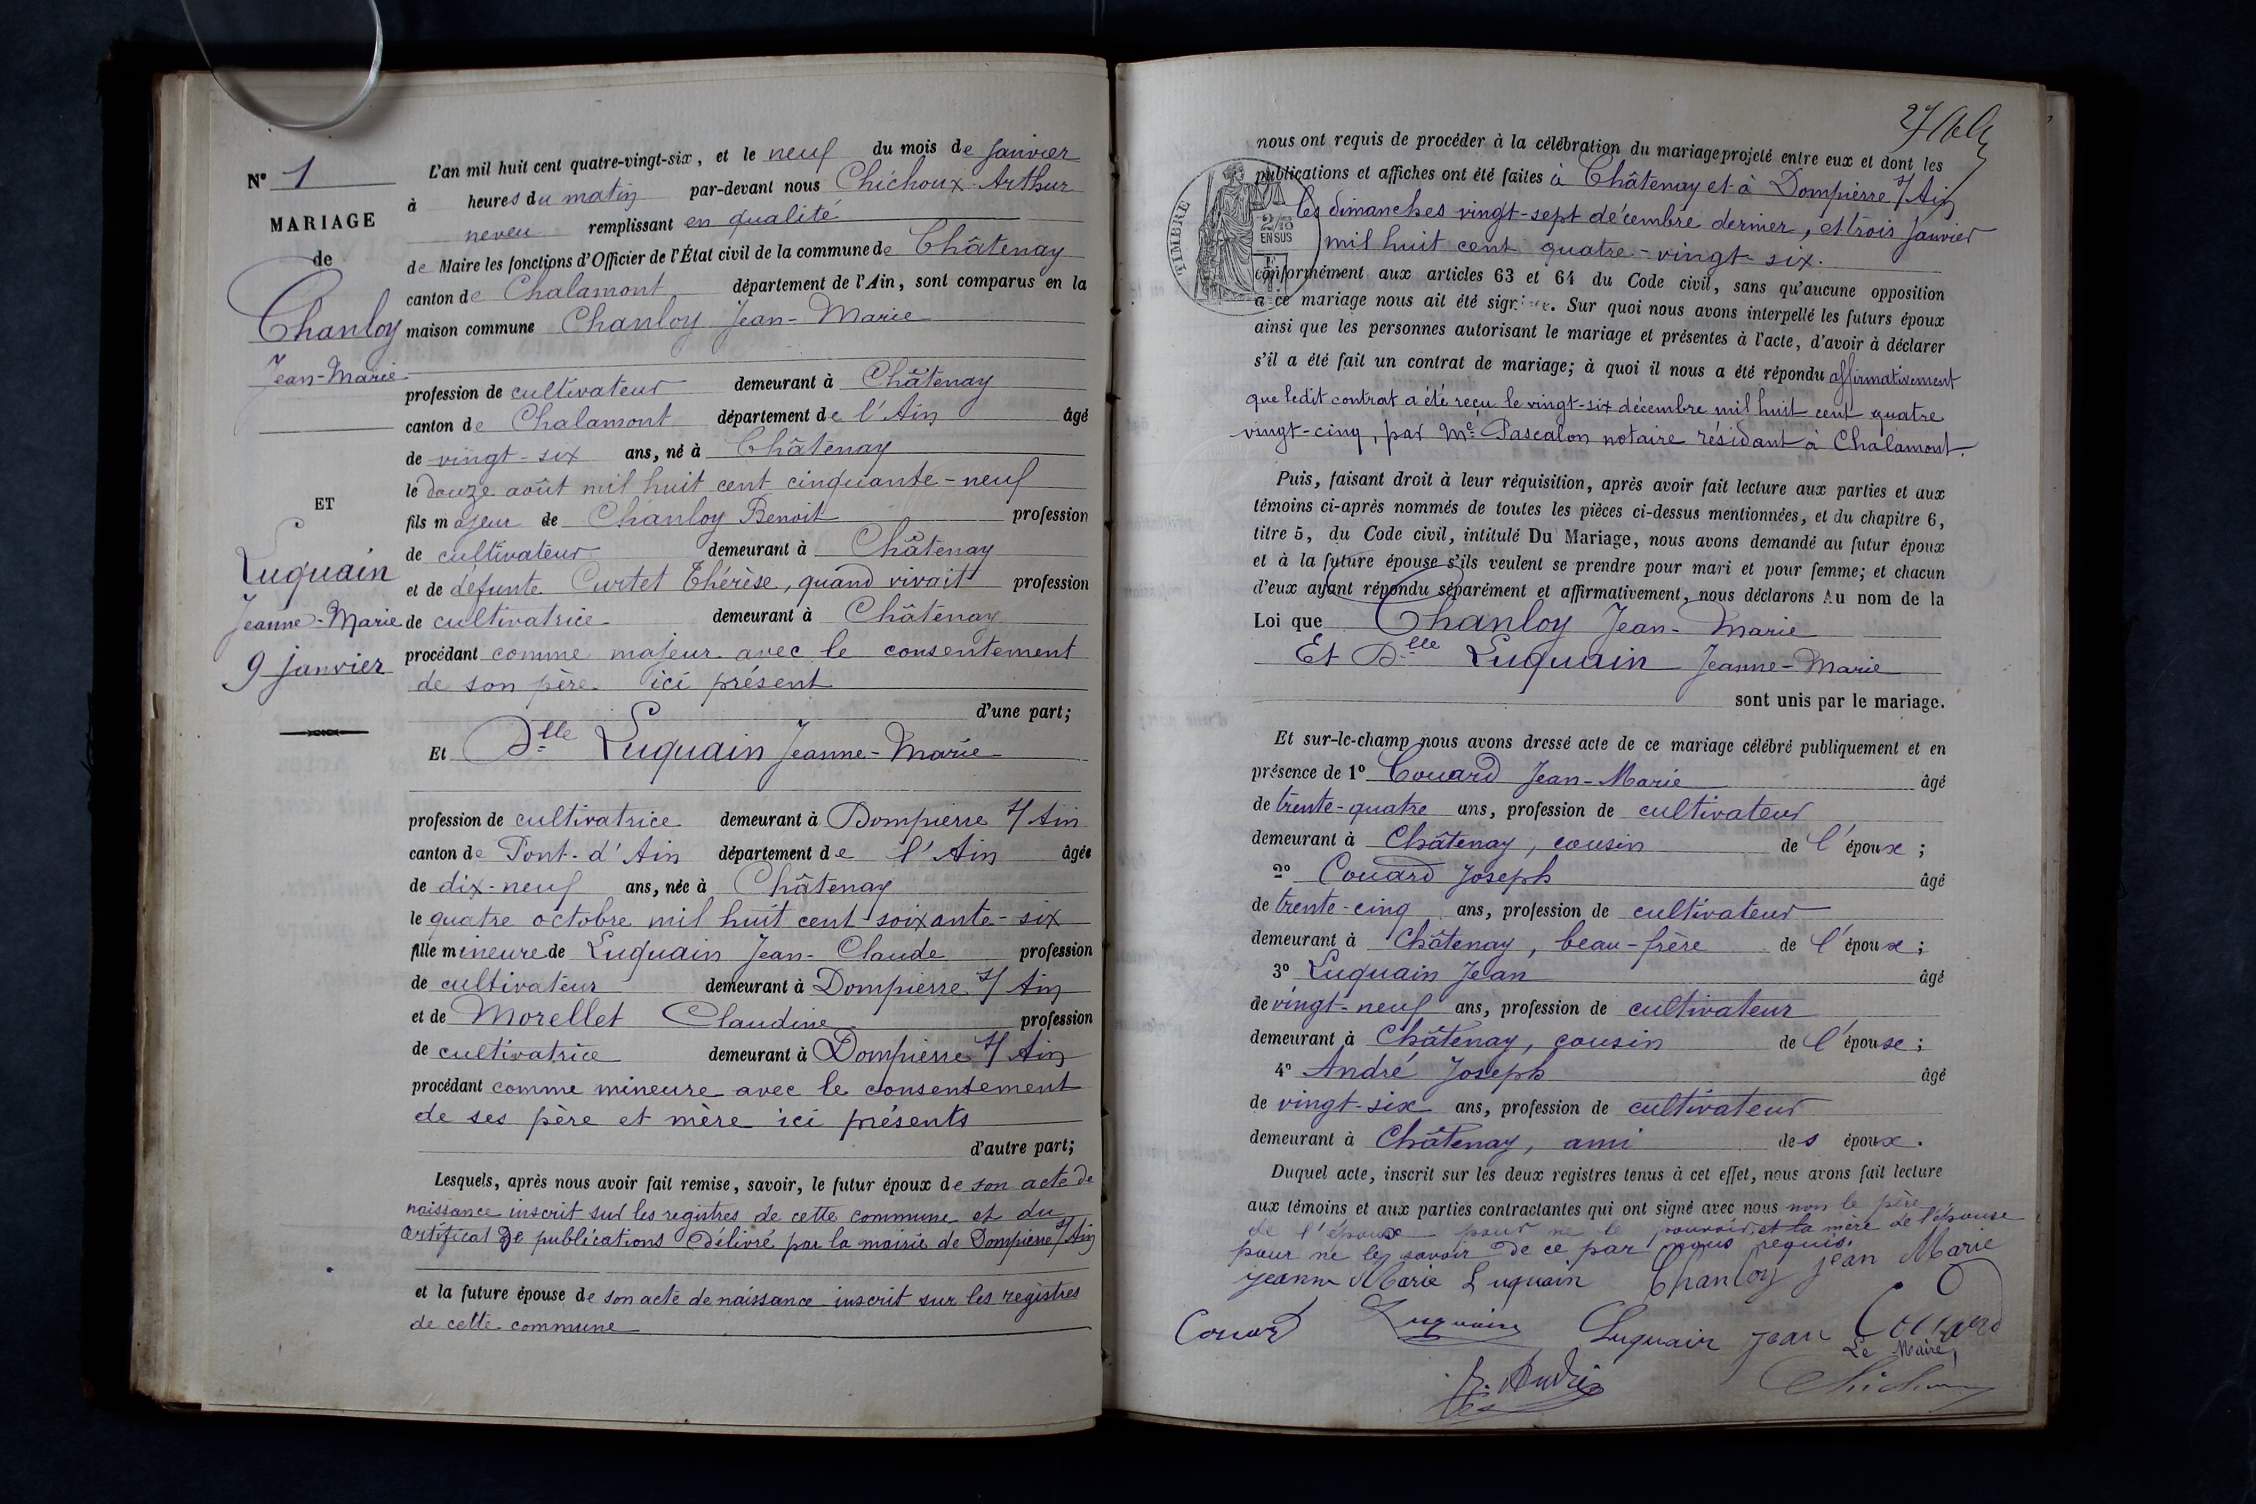 N° 1
MARIAGE
de
Chanloy
Jean-Marie
ET
Luquain
Jeanne-Marie
9 janvier
L'an mil huit cent quatre-vingt-six, et le neuf du mois de janvier
à heures du matin par-devant nous Chichoux Arthur
neveu remplissant en qualité
de Maire les fonctions d'Officier de l'État civil de la commune de Châtenay
canton de Chalamont département de l'Ain, sont comparus en la
maison commune Chanloy Jean-Marie
profession de cultivateur demeurant à Châtenay
canton de Chalamont département de l'Ain âgé
de vingt-six ans, né à Châtenay
le douze août mil huit cent cinquante-neuf
fils majeur de Chanloy Benoit profession
de cultivateur demeurant à Châtenay
et de défunte Curtet Thérèse, quand vivait profession
de cultivatrice demeurant à Châtenay
procédant comme majeur avec le consentement
de son père ici présent
d'une part;
Et Dlle Luquain Jeanne-Marie
profession de cultivatrice demeurant à Dompierre s/ Ain
canton de Pont-d'Ain département de l'Ain âgée
de dix-neuf ans, née à Châtenay
le quatre octobre mil huit cent soixante-six
fille mineure de Luquain Jean-Claude profession
de cultivateur demeurant à Dompierre s/ Ain
et de Morellet Claudine profession
de cultivatrice demeurant à Dompierre s/ Ain
procédant comme mineure avec le consentement
de ses père et mère ici présents
d'autre part;
Lesquels, après nous avoir fait remise, savoir, le futur époux de son acte de
naissance inscrit sur les registres de cette commune et du
certificat de publications délivré par la mairie de Dompierre s/ Ain
et la future épouse de son acte de naissance inscrit sur les registres
de cette commune
nous ont requis de procéder à la célébration du mariage projeté entre eux et dont les
publications et affiches ont été faites à Châtenay et à Dompierre s/ Ain
les dimanches vingt-sept décembre dernier, et trois Janvier
mil huit cent quatre-vingt-six.
TIMBRE
2/10
EN SUS
conformément aux articles 63 et 64 du Code civil, sans qu'aucune opposition
à ce mariage nous ait été signifiée. Sur quoi nous avons interpellé les futurs époux
ainsi que les personnes autorisant le mariage et présentes à l'acte, d'avoir à déclarer
s'il a été fait un contrat de mariage; à quoi il nous a été répondu affirmativement
que ledit contrat a été reçu le vingt-six décembre mil huit cent quatre
vingt-cinq, par Me Pascalon notaire résidant à Chalamont.
Puis, faisant droit à leur réquisition, après avoir fait lecture aux parties et aux
témoins ci-après nommés de toutes les pièces ci-dessus mentionnées, et du chapitre 6,
titre 5, du Code civil, intitulé Du Mariage, nous avons demandé au futur époux
et à la future épouse s'ils veulent se prendre pour mari et pour femme; et chacun
d'eux ayant répondu séparément et affirmativement, nous déclarons Au nom de la
Loi que Chanloy Jean-Marie
Et Dlle Luquain Jeanne-Marie
sont unis par le mariage.
Et sur-le-champ nous avons dressé acte de ce mariage célébré publiquement et en
présence de 1° Couard Jean-Marie âgé
de trente-quatre ans, profession de cultivateur
demeurant à Châtenay, cousin de l'époux;
2° Couard Joseph âgé
de trente-cinq ans, profession de cultivateur
demeurant à Châtenay, beau-frère de l'époux;
3° Luquain Jean âgé
de vingt-neuf ans, profession de cultivateur
demeurant à Châtenay, cousin de l'épouse;
4° André Joseph âgé
de vingt-six ans, profession de cultivateur
demeurant à Châtenay, ami des époux.
Duquel acte, inscrit sur les deux registres tenus à cet effet, nous avons fait lecture
aux témoins et aux parties contractantes qui ont signé avec nous non le père
de l'époux pour ne le pouvoir, et la mère de l'épouse
pour ne les savoir de ce par nous requis.
Jeanne Marie Luquain Chanloy Jean Marie
Couard Luquain Luquain Jean Couard
Le Maire,
J. André Chichoux